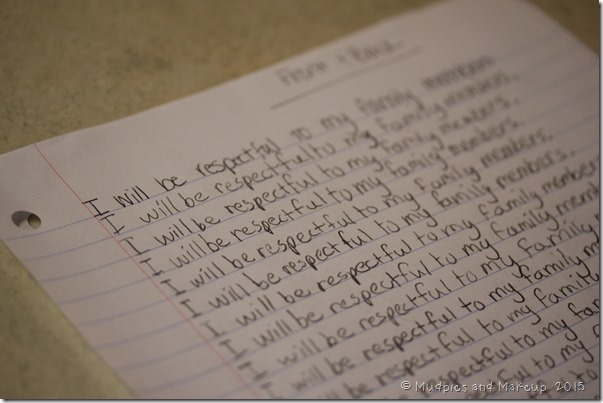 Front Back
I will be respectful to my family members
I will be respectful to my family members.
I will be respectful to my family members.
I will be respectful to my family members.
I will be respectful to my family members.
I will be respectful to my family members.
I will be respectful to my family members
I will be respectful to my family
I will be respectful to my family
I will be respectful to my family
be respectful to my
respectful to my
© Mudpies and Makeup 2015